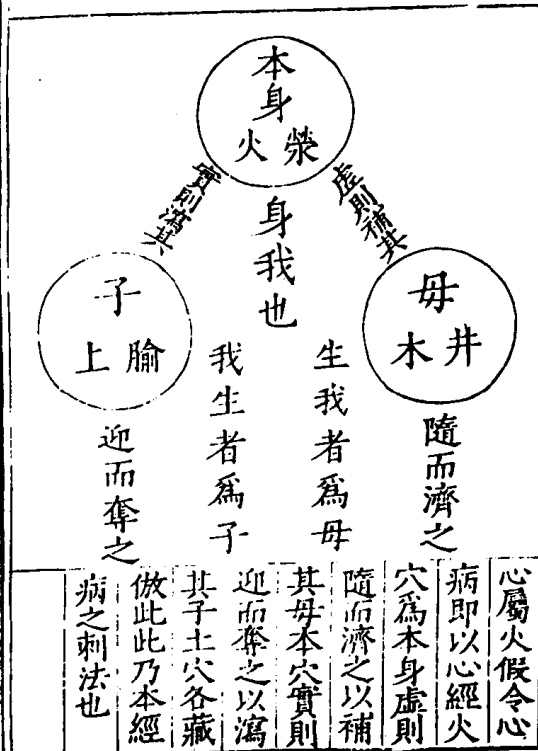 本身
滎火
虛則補其
實則瀉其
身我也
母
井木
隨而濟之
生我者爲母
我生者爲子
子
腧上
迎而奪之
心屬火假令心
病即以心經火
穴爲本身虛則
隨而濟之以補
其母本穴實則
迎而奪之以瀉
其子土穴各藏
倣此此乃本經
病之刺法也